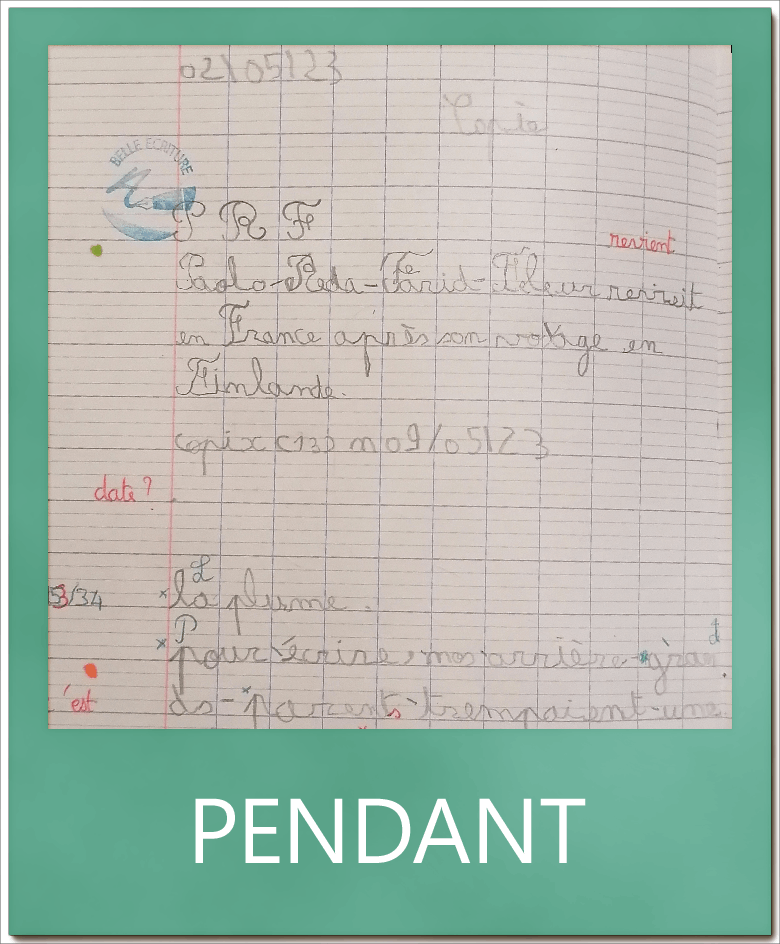 02/05/23
Copie
BELLE ECRITURE
P R F
revient
Paolo-Reda-Farid-Fleur revreit
en France après son voyage en
Finlande.
copix (13) m 09/05/23
date ?
L
53/34 *la plume.
P d
*pour écrire, mes arrière-*gran
'est ds-*parents trempaient une
PENDANT